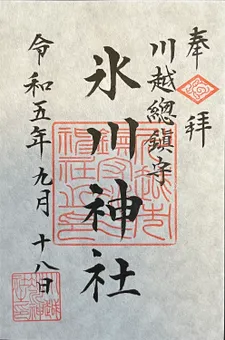 奉拝
川越總鎮守
氷川神社
令和五年九月十八日